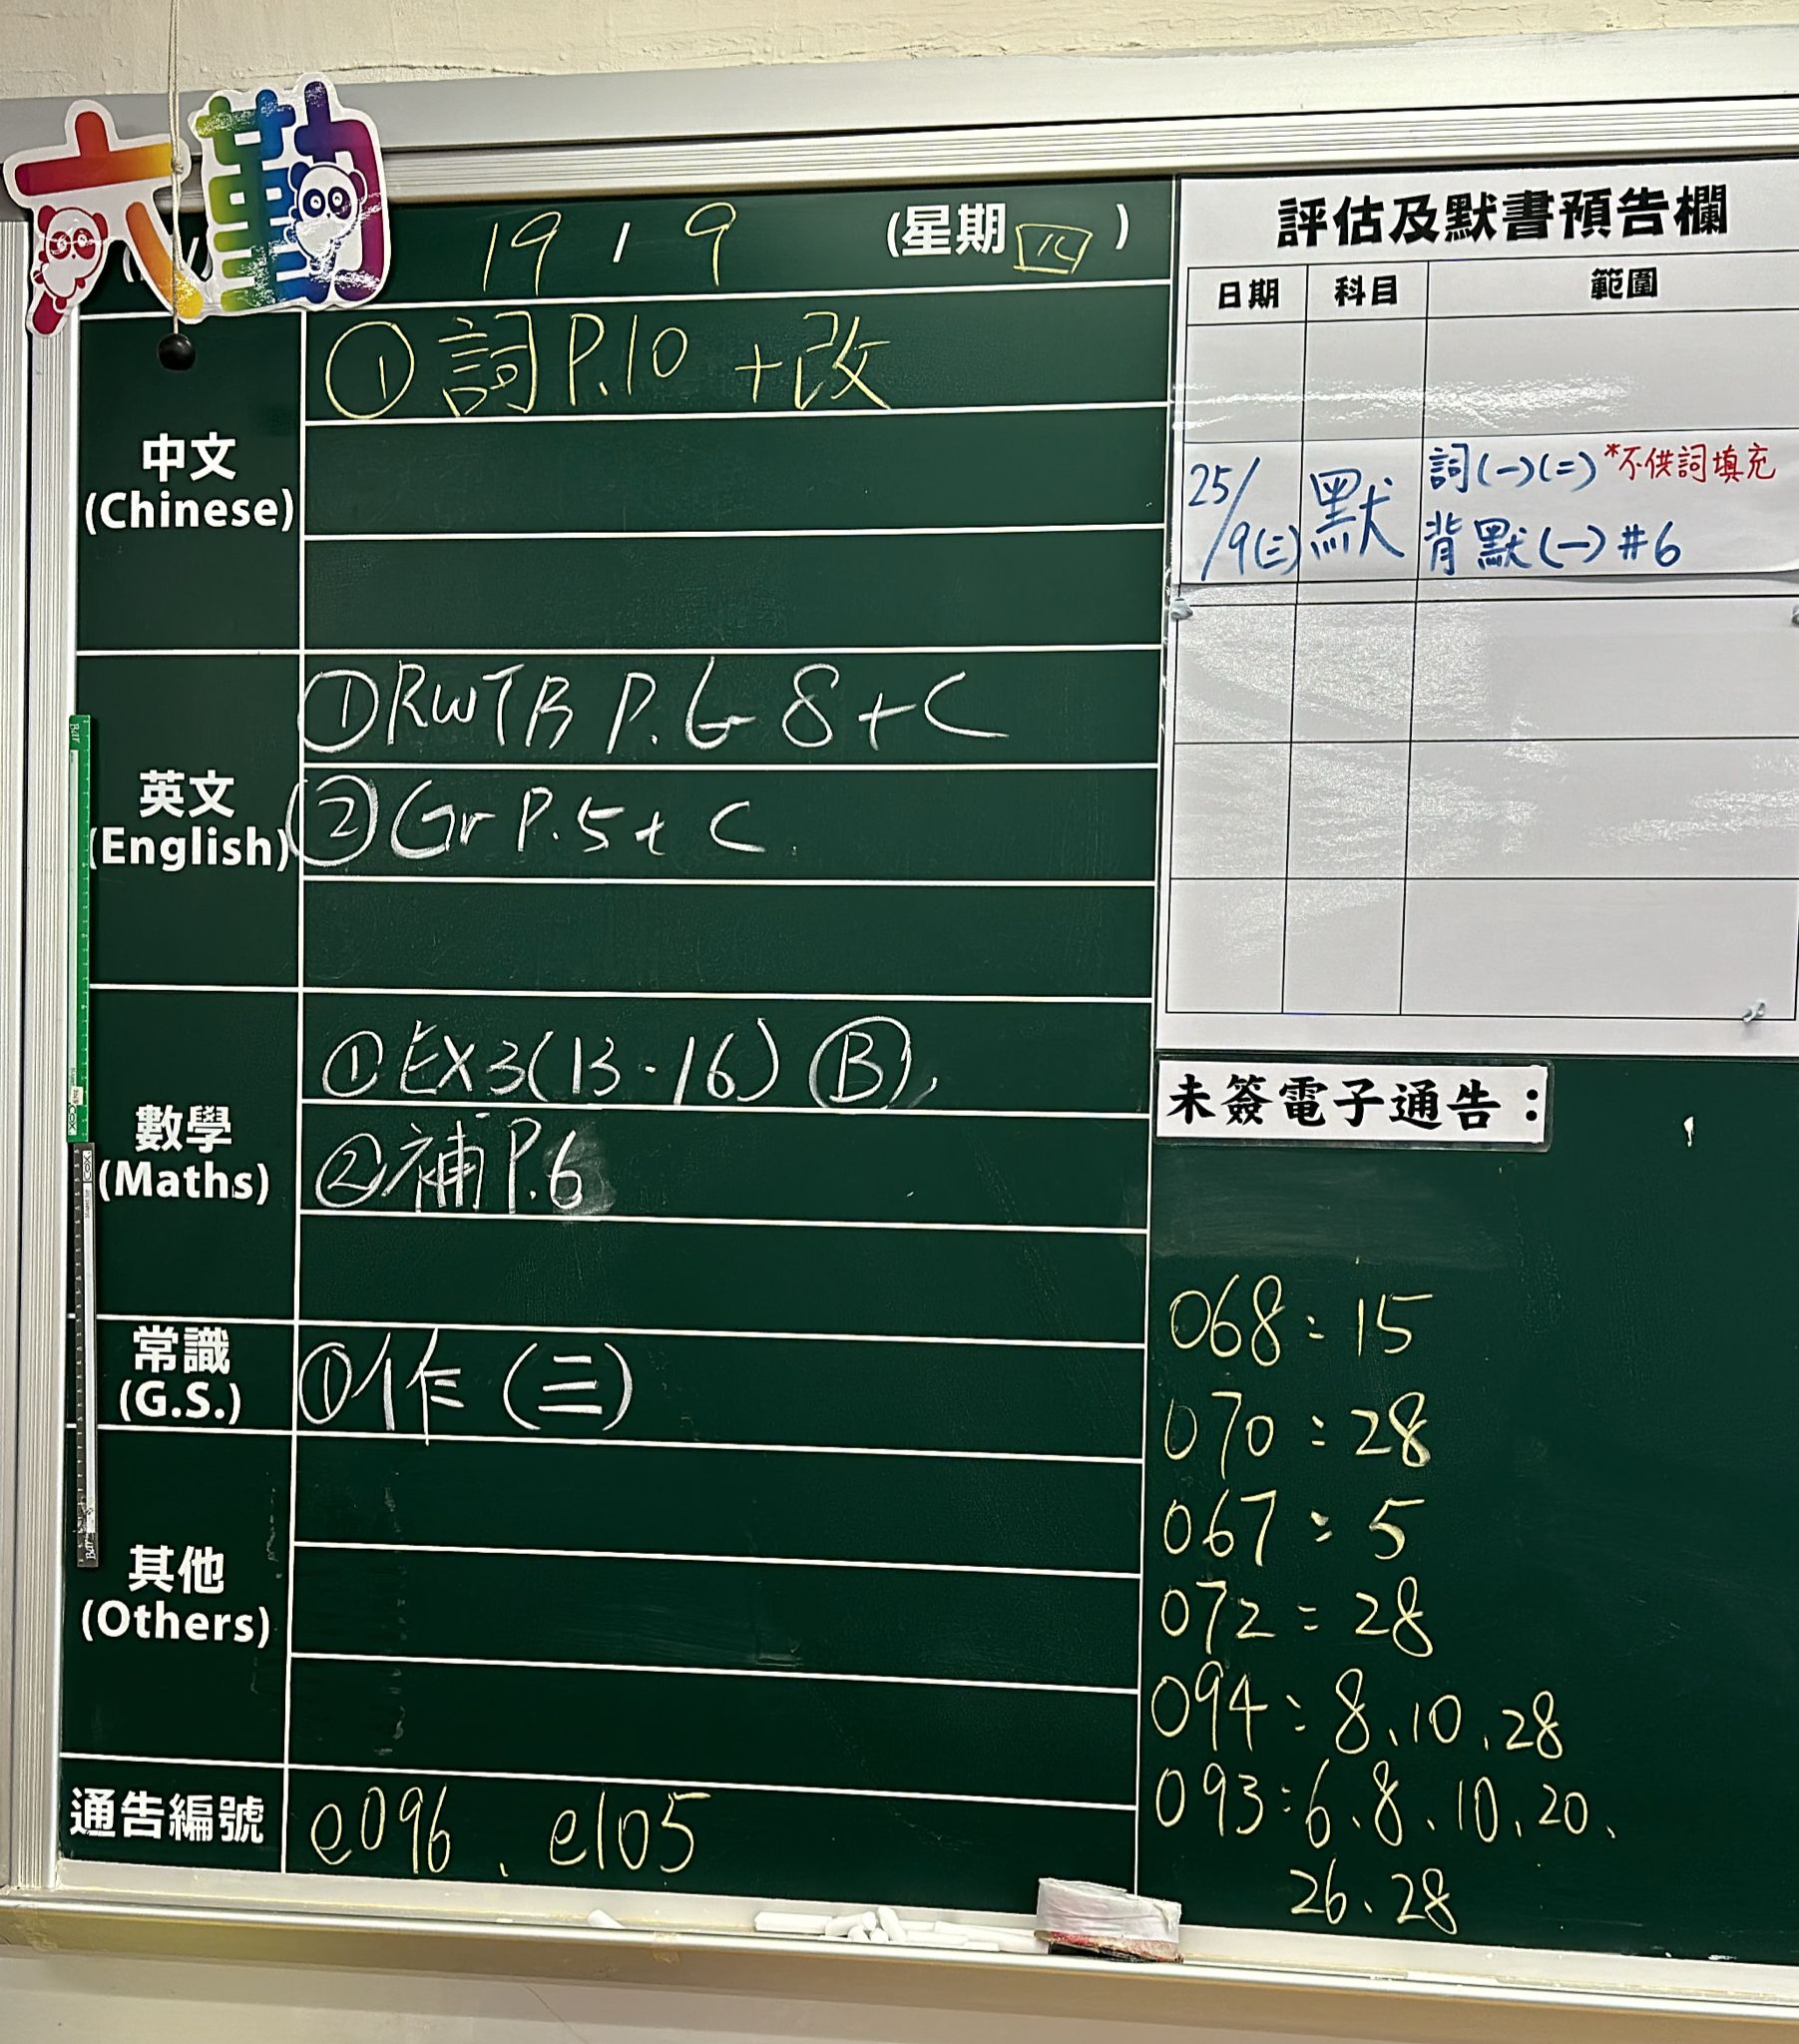 六勤
19 / 9 (星期四)
中文
(Chinese)
① 詞 P.10 + 改
英文
(English)
① RWTB P.6-8 + C
② Gr P.5 + C
數學
(Maths)
① EX3(13-16) Ⓑ
② 補 P.6
常識
(G.S.)
① 作 (三)
其他
(Others)
通告編號
e096、e105
評估及默書預告欄
日期 科目 範圍
25/9(三) 默 詞(一)(二) *不供詞填充
背默(一) #6
未簽電子通告：
068：15
070：28
067：5
072：28
094：8、10、28
093：6、8、10、20、
26、28